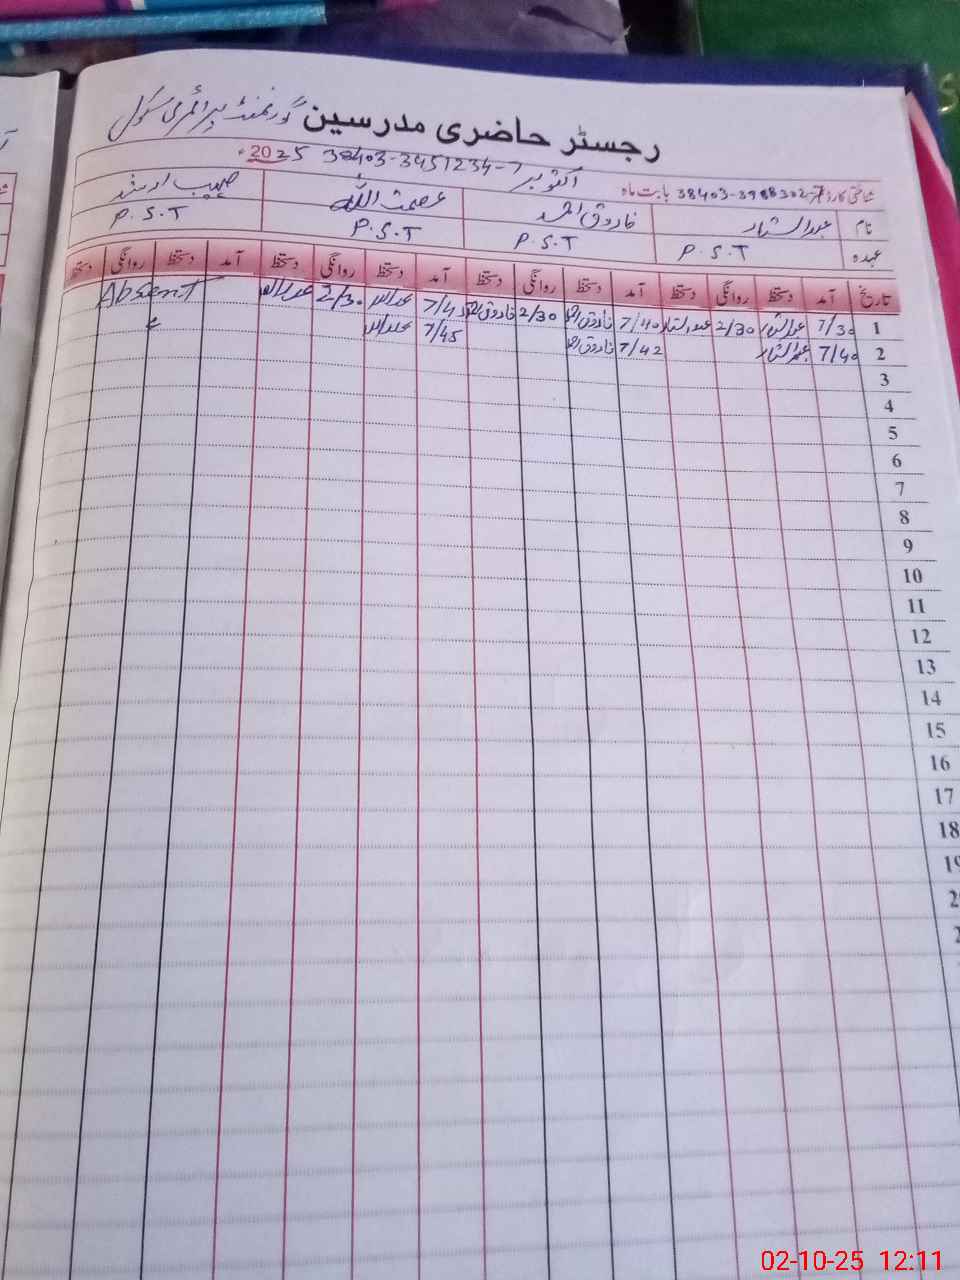 رجسٹر حاضری مدرسین گورنمنٹ پرائمری سکول
شناختی کارڈ نمبر 38403-3988302- بابت ماہ اکتوبر 2025 38403-3451234-7
نام عبدالستار فاروق احمد عصمت اللہ صہیب ارشد
عہدہ P.S.T P.S.T P.S.T P.S.T
تاریخ آمد دستخط روانگی دستخط آمد دستخط روانگی دستخط آمد دستخط روانگی دستخط آمد دستخط روانگی دستخط
1 7/30 عبدالستار 2/30 عبدالستار 7/40 فاروق احمد 2/30 فاروق احمد 7/45 2/30 Absent
2 7/40 عبدالستار 7/42 فاروق احمد 7/45
3
4
5
6
7
8
9
10
11
12
13
14
15
16
17
18
02-10-25 12:11